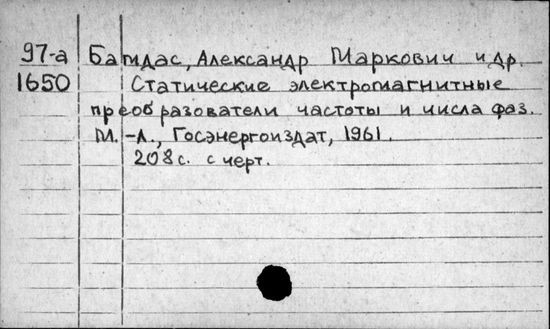 97-а Бамдас, Александр Маркович и др.
1650 Статические электромагнитные
преобразователи частоты и числа фаз.
М.-Л., Госэнергоиздат, 1961.
208 с. с черт.